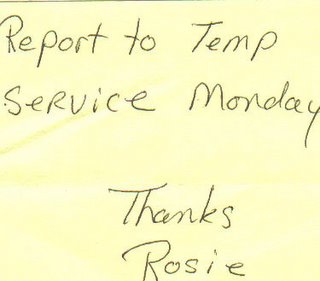 Report to Temp
Service Monday
Thanks
Rosie